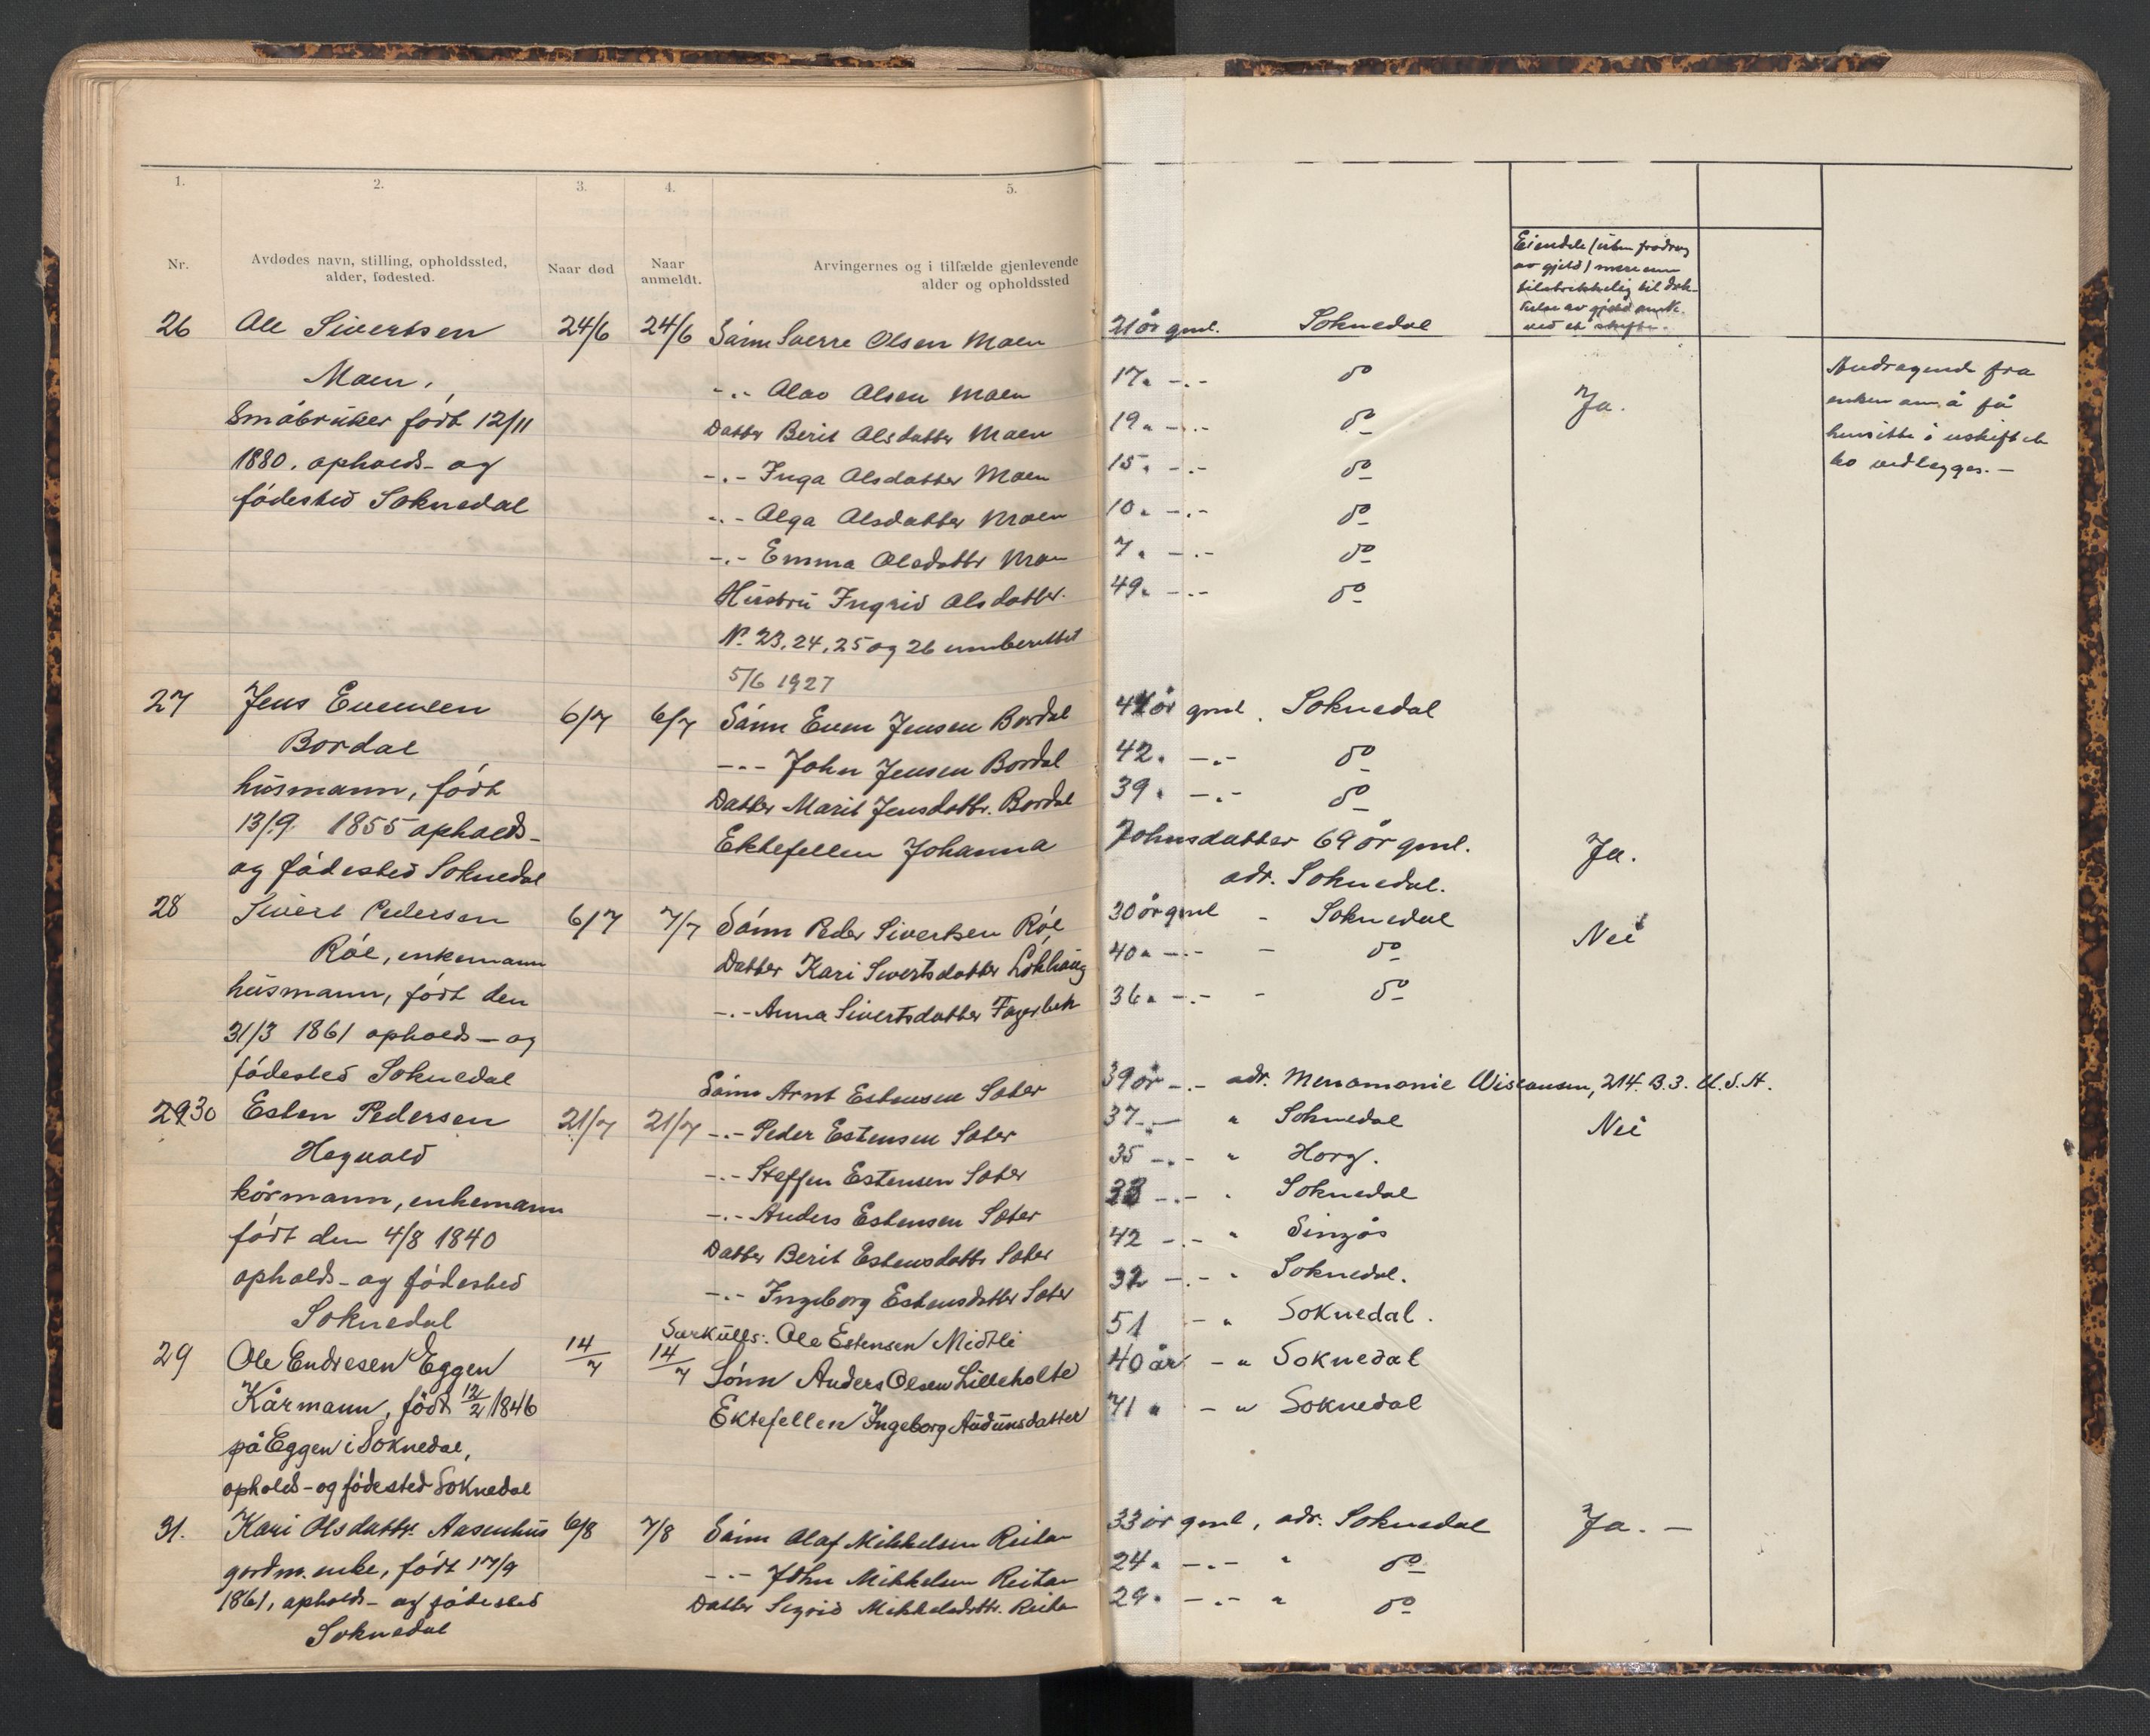 1. 2. 3. 4. 5.
Nr. Avdødes navn, stilling, opholdssted, alder, fødested. Naar død Naar anmeldt. Arvingernes og i tilfælde gjenlevende alder og opholdssted
Eiendele (uten fradrag
av gjeld) mere enn
tilstrekkelig til dek-
ved et skifte.
26 Ole Sivertsen 24/6 24/6 Sønn Sverre Olsen Moen 21 år gml. Soknedal
Moen, -"- Olav Olsen Moen 17 " -"- do Ja. Andragende fra
Småbruker født 12/11 Datter Berit Olsdatter Moen 19 " -"- do enken om å få
1880. opholds- og -"- Inga Olsdatter Moen 15 " -"- do hensitte i uskiftet
fødested Soknedal -"- Olga Olsdatter Moen 10 " -"- do bo vedlegges. -
-"- Emma Olsdatter Moen 7 " -"- do
Hustru Ingrid Olsdatter. 49 " -"- do
No. 23, 24, 25 og 26 innberettet
5/6 1927
27 Jens Evensen 6/7 6/7 Sønn Even Jensen Bordal år gml. Soknedal
Bordal -"- John Jensen Bordal 42 " -"- do
husmann, født Datter Marit Jensdattr. Bordal 39 " -"- do
13/9 1855 opholds- Ektefellen Johanna Johnsdatter 69 år gml. Ja.
og fødested Soknedal adr. Soknedal.
28 Sivert Pedersen 6/7 7/7 Sønn Peder Sivertsen Røe 30 år gml - Soknedal Nei
Røe, enkemann Datter Kari Sivertsdatter Løkhaug 40 " -"- - do
husmann, født den -"- Anna Sivertsdatter Fagerbekk 36 " -"- - do
31/3 1861 opholds- og
fødested Soknedal Sønn Arnt Estensen Sæter 39 år -"- adr. Menomonie Wisconsen, 214. B. 3. U. S. A.
30 Esten Pedersen 21/7 21/7 -"- Peder Estensen Sæter 37 -"- " Soknedal Nei
Hagvold -"- Steffen Estensen Sæter 35 -"- " Horg.
kårmann, enkemann -"- Anders Estensen Sæter 33 -"- " Soknedal
født den 4/8 1840 Datter Berit Estensdattr Sæter 42 -"- " Singsås
opholds- og fødested -"- Ingeborg Estensdatter Sæter 32 -"- " Soknedal.
Soknedal Særkulls: Ole Estensen Midtli 51 - " Soknedal.
29 Ole Endresen Eggen 14/7 14/7 Sønn Anders Olsen Lilleholte 40 år - " Soknedal
Kårmann, født 12/2 1846 Ektefellen Ingeborg Audunsdatter 71 " - " Soknedal
på Eggen i Soknedal,
opholds- og fødested Soknedal
31. Kari Olsdattr. Aasenhus 6/8 7/8 Sønn Olaf Mikkelsen Reitan 33 år gml, adr. Soknedal Ja. -
gårdm. enke, født 17/9 -"- John Mikkelsen Reitan 24 " -"- " do
1861, opholds- og fødested Datter Sigrid Mikkelsdttr. Reitan 29 " -"- " do
Soknedal